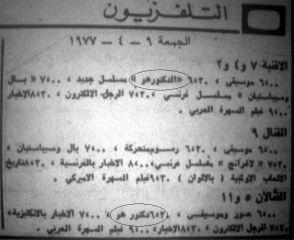 التلفزيون
الجمعة ٩ - ٤ - ١٩٧٧
الاقنية ٧ و٤ و٢
٦٫٠٠ موسيقى ، ٦٫٣٠ «الدكتور هو» مسلسل جديد ، ٧٫٠٠ « بال
وسيباستيان » مسلسل فرنسي ، ٧٫٣٠ الرجل الالكترون ، ٨٫٣٠ الاخبار
٩٫٠٠ فيلم السهرة العربي .
القنال ٩
٦٫٠٠ موسيقى ، ٦٫٣٠ رسوم متحركة ، ٧٫٠٠ بال وسيباستيان ،
٧٫٣٠ « لافرانج » مسلسل فرنسي ، ٨٫٠٠ الاخبار بالفرنسية ، ٨٫٣٠ تاريخ
الالعاب الاولمبية ( بالالوان ) ٩٫٣٠ فيلم السهرة الاميركي .
القنالان ٥ و١١
٦٫٠٠ صور وموسيقى ، ٦٫٣٠ دكتور هو ، ٧٫٠٠ الاخبار بالانكليزية،
٧٫٣٠ الرجل الالكترون ، ٨٫٣٠ الاخبار، ٩٫٠٠ فيلم السهرة العربي .